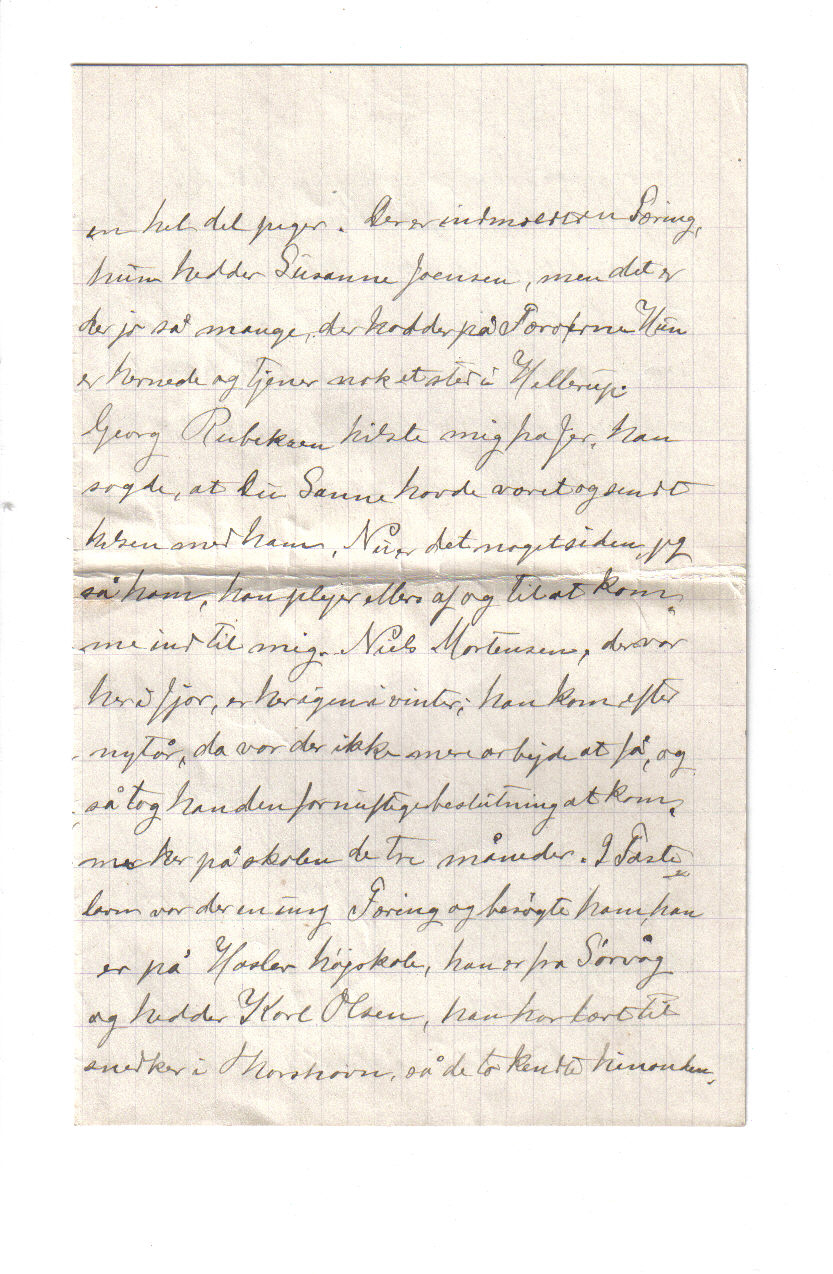 en hel del piger. Der er indmeldt en Færing,
hun hedder Susanne Joensen, men det er
der jo så mange, der hedder på Færøerne Hun
er hernede og tjener nok et sted i Hellerup.
Georg Rubeksen hilste mig fra Jer, han
sagde, at Du Sanne havde været og sendt
hilsen med ham, Nu er det noget siden, jeg
så ham, han plejer ellers af og til at kom-
me ind til mig. Niels Mortensen, der var
her i fjor, er her igen i vinter; han kom efter
nytår, da var der ikke mere arbejde at få, og
så tog han den fornuftige beslutning at kom-
me her på skolen de tre måneder. I Faste-
lavn var der en ung Færing og besøgte ham, han
er på Haslev højskole, han er fra Sørvåg
og hedder Karl Olsen, han har lært til
snedker i Thorshavn, så de to kendte hinanden,